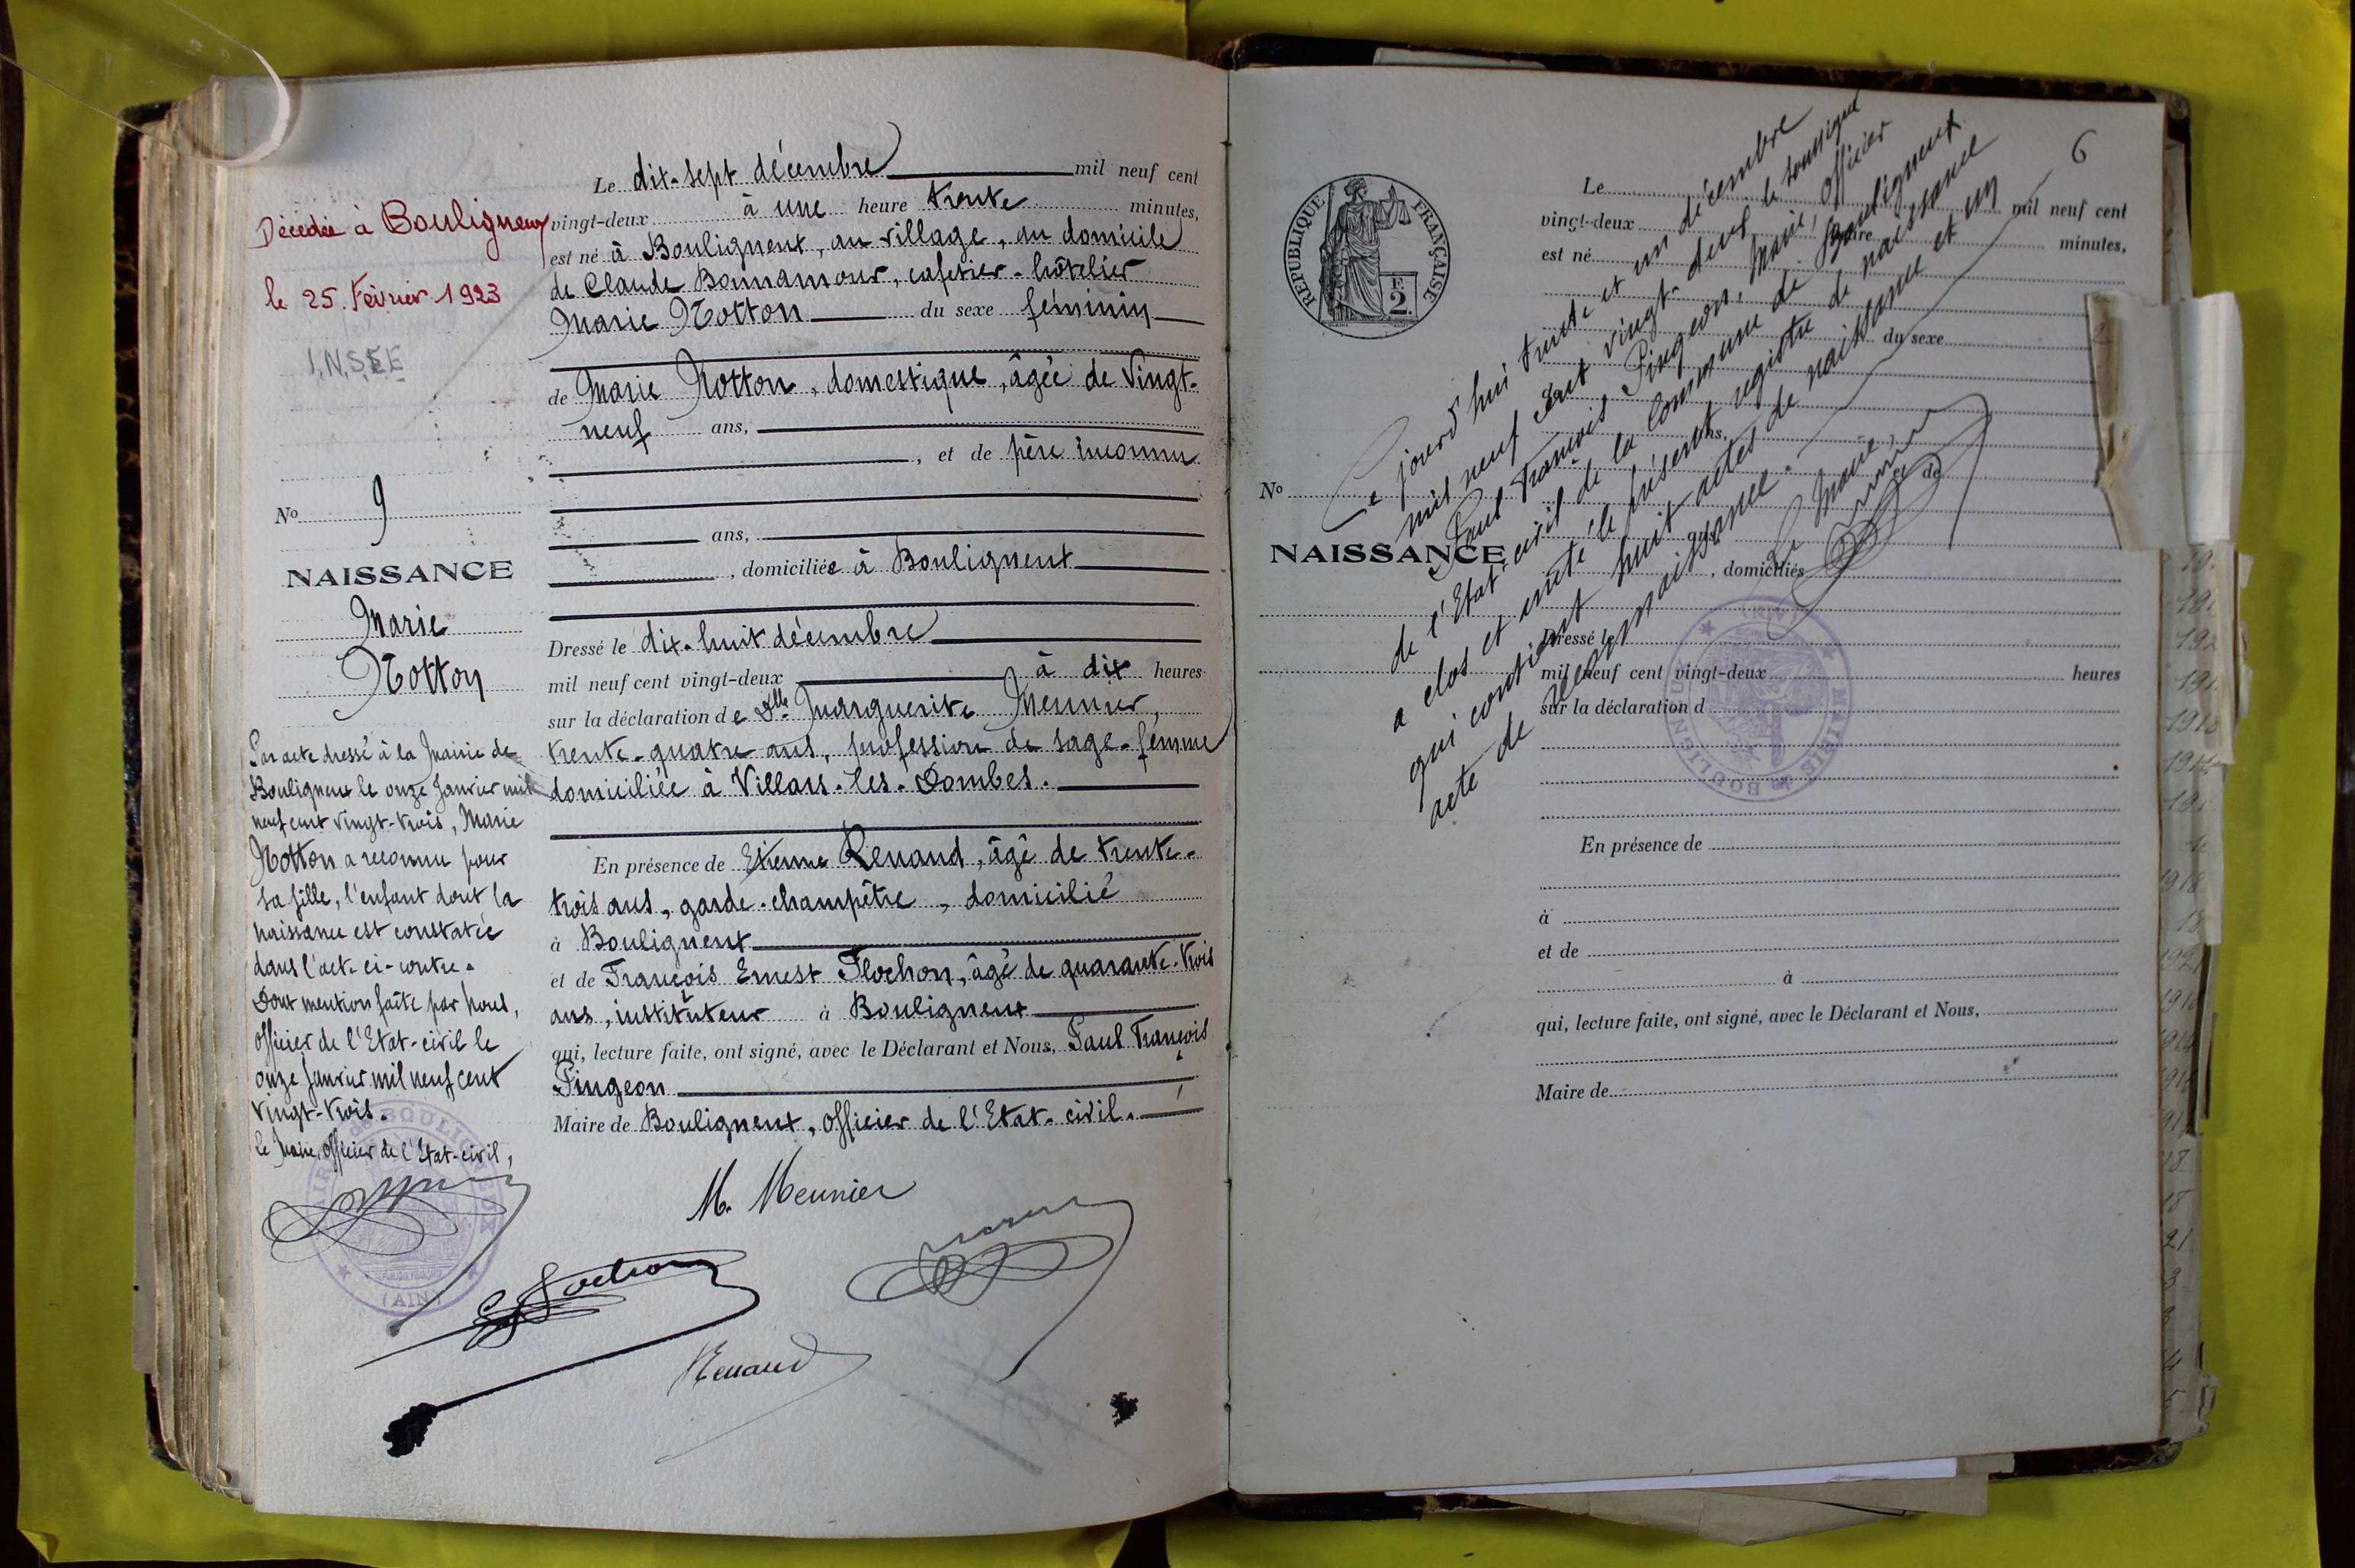 Le dix-sept décembre mil neuf cent
vingt-deux à une heure trente minutes,
est né à Bouligneux, au village, au domicile
de Claude Bonnamour, cafetier-hôtelier
Marie Notton du sexe féminin
de Marie Notton, domestique, âgée de vingt-
neuf ans,
, et de père inconnu
ans,
, domiciliée à Bouligneux
Dressé le dix-huit décembre
mil neuf cent vingt-deux à dix heures
sur la déclaration de Dlle Marguerite Meunier,
trente-quatre ans, profession de sage-femme
domiciliée à Villars-les-Dombes.
En présence de Etienne Renaud, âgé de trente-
trois ans, garde-champêtre, domicilié
à Bouligneux
et de François Ernest Flochon, âgé de quarante-trois
ans, instituteur à Bouligneux
qui, lecture faite, ont signé, avec le Déclarant et Nous, Paul François
Pingeon
Maire de Bouligneux, officier de l'Etat-civil.
M. Meunier
Renaud
Décédée à Bouligneux
le 25 Février 1923
I.N.S.E.E
No 9
NAISSANCE
Marie
Notton
Par acte dressé à la Mairie de
Bouligneux le onze Janvier mil
neuf cent vingt-trois, Marie
Notton a reconnu pour
sa fille, l'enfant dont la
naissance est constatée
dans l'acte ci-contre.
Dont mention faite par nous,
officier de l'Etat-civil le
onze Janvier mil neuf cent
vingt-trois.
le Maire, officier de l'Etat-civil,
MAIRIE DE BOULIGNEUX
(AIN)
6
RÉPUBLIQUE FRANÇAISE
F.
2.
Le
mil neuf cent
vingt-deux heure minutes,
est né
du sexe
ans,
et de
No
NAISSANCE
ans,
, domiciliés
Dressé le
mil neuf cent vingt-deux heures
sur la déclaration d
En présence de
à
et de
à
qui, lecture faite, ont signé, avec le Déclarant et Nous,
Maire de
Ce jourd'hui trente et un décembre
mil neuf cent vingt-deux le soussigné
Paul François Pingeon, Maire, officier
de l'Etat civil de la Commune de Bouligneux
a clos et arrêté le présent registre de naissance
qui contient huit actes de naissance et un
acte de reconnaissance.
Le Maire,
MAIRIE BOULIGNEUX (AIN)